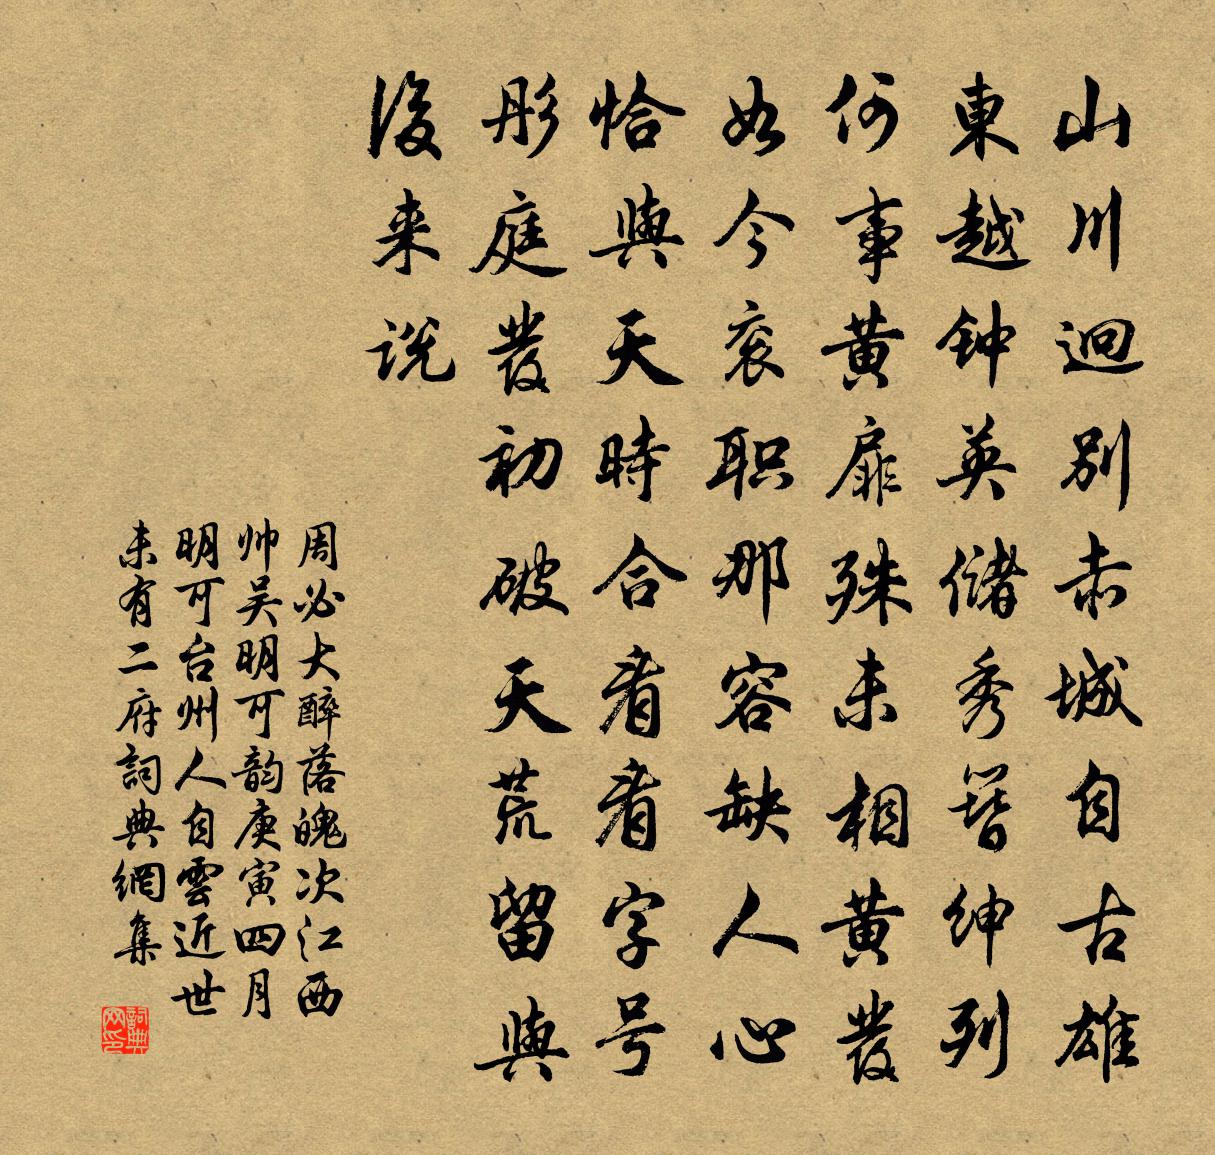 山川迥別赤城自古雄
東越钟英儲秀簪紳列
何事黄扉殊未相黄發
如今衮职那容缺人心
恰與天時合看看字号
彤庭發初破天荒留與
後来说
周必大醉落魄次江西
帅吴明可韵庚寅四月
明可台州人自雲近世
未有二府詞典網集
詞典网印